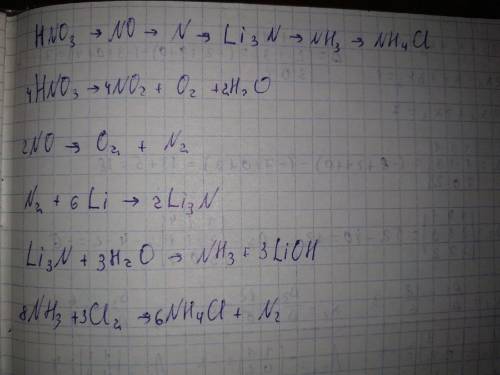 HNO₃ → NO → N → Li₃N → NH₃ → NH₄Cl
4HNO₃ → 4NO₂ + O₂ + 2H₂O
2NO → O₂ + N₂
N₂ + 6Li → 2Li₃N
Li₃N + 3H₂O → NH₃ + 3LiOH
8NH₃ + 3Cl₂ → 6NH₄Cl + N₂